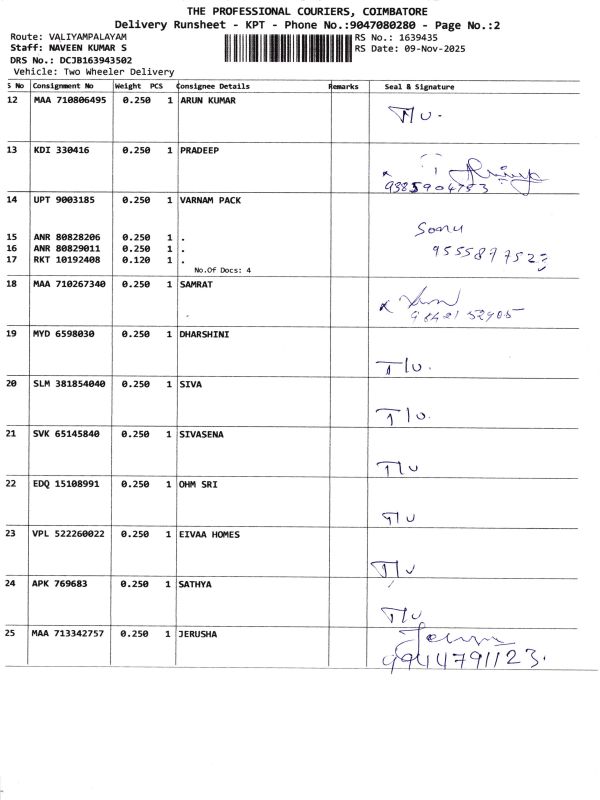 THE PROFESSIONAL COURIERS, COIMBATORE
Delivery Runsheet - KPT - Phone No.:9047080280 - Page No.:2
Route: VALIYAMPALAYAM RS No.: 1639435
Staff: NAVEEN KUMAR S RS Date: 09-Nov-2025
DRS No.: DCJB163943502
Vehicle: Two Wheeler Delivery
S No Consignment No Weight PCS Consignee Details Remarks Seal & Signature
12 MAA 710806495 0.250 1 ARUN KUMAR
13 KDI 330416 0.250 1 PRADEEP
9385904753
14 UPT 9003185 0.250 1 VARNAM PACK
Sonu
15 ANR 80828206 0.250 1 .
16 ANR 80829011 0.250 1 .
17 RKT 10192408 0.120 1 .
No.Of Docs: 4
18 MAA 710267340 0.250 1 SAMRAT
19 MYD 6598030 0.250 1 DHARSHINI
T/U.
20 SLM 381854040 0.250 1 SIVA
T/U.
21 SVK 65145840 0.250 1 SIVASENA
T/U
22 EDQ 15108991 0.250 1 OHM SRI
T/U
23 VPL 522260022 0.250 1 EIVAA HOMES
T/U
24 APK 769683 0.250 1 SATHYA
T/U
25 MAA 713342757 0.250 1 JERUSHA
9944791123.